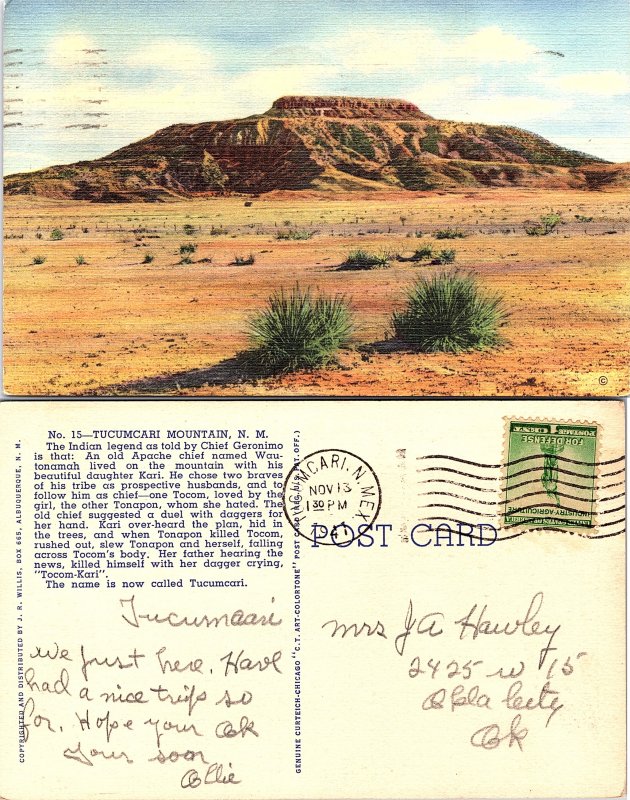 ©
No. 15—TUCUMCARI MOUNTAIN, N. M.
The Indian legend as told by Chief Geronimo
is that: An old Apache chief named Wau-
tonamah lived on the mountain with his
beautiful daughter Kari. He chose two braves
of his tribe as prospective husbands, and to
follow him as chief—one Tocom, loved by the
girl, the other Tonapon, whom she hated. The
old chief suggested a duel with daggers for
her hand. Kari over-heard the plan, hid in
the trees, and when Tonapon killed Tocom,
rushed out, slew Tonapon and herself, falling
across Tocom's body. Her father hearing the
news, killed himself with her dagger crying,
"Tocom-Kari".
The name is now called Tucumcari.
COPYRIGHTED AND DISTRIBUTED BY J. R. WILLIS, BOX 665, ALBUQUERQUE, N. M.
GENUINE CURTEICH-CHICAGO "C.T. ART-COLORTONE" POST CARD (REG. U.S. PAT. OFF.)
TUCUMCARI, N. MEX.
NOV 13
1 30 PM
1941
POST CARD
UNITED STATES OF AMERICA
INDUSTRY AGRICULTURE
FOR DEFENSE
POSTAGE 1¢
Tucumcari
We just here. Have
had a nice trip so
for. Hope your ok
Your soon
Ollie
Mrs J A Hawley
2425 W 15
Okla City
Ok